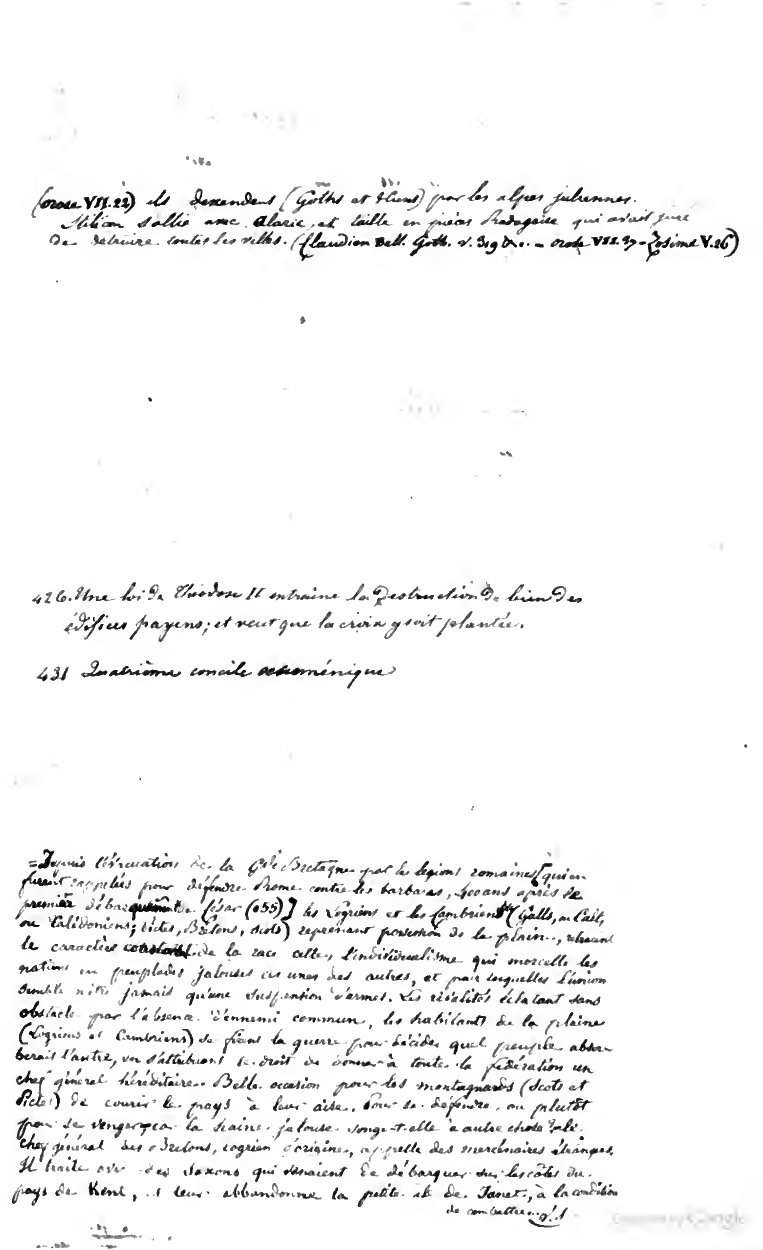 (orose VII.22) ils descendent (Goths et Huns) par les alpes juliennes.
Stilicon s'allie avec Alaric, et taille en pièces Radagaise qui avait juré
de détruire toutes les villes. (Claudien Bell. Goth. v. 319 &c. – orose VII.37 – Zosime V.26)
426. Une loi de Théodose II entraine la Destruction de bien des
édifices payens; et veut que la croix y soit plantée.
431 Quatrième concile œcuménique
= Depuis l'évacuation de la Gde Bretagne par les légions romaines [qui en
furent rappelées pour défendre Rome contre les barbares, 400 ans après le
premier débarquement de César (055)] les Logriens et les Cambriens (Galls, ou Caëls,
ou Calédoniens; Pictes, Bretons, Scots) reprenant possession de la plaine,
le caractère constant de la race celte, l'individualisme qui morcelle les
nations en peuplades jalouses les unes des autres, et pour lesquelles l'union
semble n'être jamais qu'une suspension d'armes. Les rivalités éclatant sans
obstacle par l'absence d'ennemi commun, les habitants de la plaine
(Logriens et Cambriens) se firent la guerre pour décider quel peuple absor-
berait l'autre, en s'attribuant le droit de donner à toute la fédération un
chef général héréditaire. Belle occasion pour les montagnards (Scots et
Pictes) de courir le pays à leur aise. Pour se défendre, ou plutôt
pour se venger, car la haine jalouse songe-t-elle à autre chose
chef général des Bretons, logrien d'origine, appelle des mercenaires étrangers.
Il traite avec des Saxons qui venaient de débarquer sur les côtes du
pays de Kent, et leur abbandonne la petite île de Tanet, à la condition
de combattre
Google